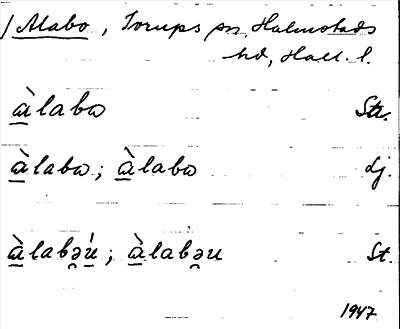 /Alabo, Torups sn, Halmstads
hd, Hall. l.
àlabɷ Str.
àlabɷ; àlabɷ dj.
àlabə̯ú; àlabə̯u St.
1947